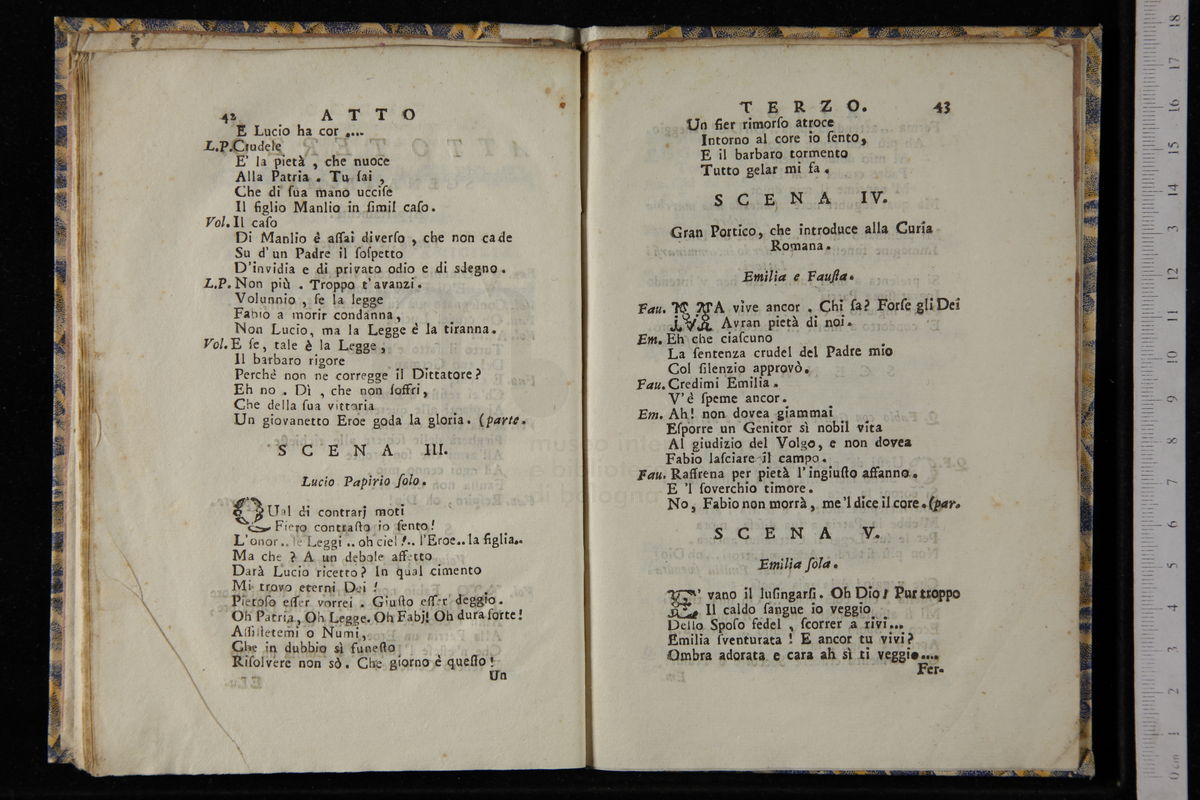 42 ATTO
E Lucio ha cor ....
L.P. Crudele
E' la pietà , che nuoce
Alla Patria . Tu ſai ,
Che di ſua mano ucciſe
Il figlio Manlio in ſimil caſo.
Vol. Il caſo
Di Manlio è aſſai diverſo , che non cade
Su d'un Padre il ſoſpetto
D'invidia e di privato odio e di sdegno.
L.P. Non più . Troppo t'avanzi.
Volunnio , ſe la legge
Fabio a morir condanna,
Non Lucio, ma la Legge è la tiranna.
Vol. E ſe, tale è la Legge,
Il barbaro rigore
Perchè non ne corregge il Dittatore?
Eh no . Dì , che non ſoffri,
Che della ſua vittoria
Un giovanetto Eroe goda la gloria. (parte.
SCENA III.
Lucio Papirio ſolo.
QUal di contrarj moti
Fiero contraſto io ſento!
L'onor.. le Leggi .. oh ciel!.. l'Eroe.. la figlia..
Ma che ? A un debole affetto
Darà Lucio ricetto? In qual cimento
Mi trovo eterni Dei !
Pietoſo eſſer vorrei . Giuſto eſſer deggio.
Oh Patria, Oh Legge. Oh Fabj! Oh dura ſorte!
Aſſiſtetemi o Numi,
Che in dubbio sì funeſto
Riſolvere non sò. Che giorno è queſto!
Un
TERZO. 43
Un fier rimorſo atroce
Intorno al core io ſento,
E il barbaro tormento
Tutto gelar mi fa.
SCENA IV.
Gran Portico, che introduce alla Curia
Romana.
Emilia e Fauſta.
Fau. MA vive ancor . Chi ſa? Forſe gli Dei
Avran pietà di noi.
Em. Eh che ciaſcuno
La ſentenza crudel del Padre mio
Col ſilenzio approvò.
Fau. Credimi Emilia.
V'è ſpeme ancor.
Em. Ah! non dovea giammai
Eſporre un Genitor sì nobil vita
Al giudizio del Volgo, e non dovea
Fabio laſciare il campo.
Fau. Raffrena per pietà l'ingiuſto affanno.
E 'l ſoverchio timore.
No, Fabio non morrà, me 'l dice il core. (par.
SCENA V.
Emilia ſola.
E' vano il luſingarſi. Oh Dio! Pur troppo
Il caldo ſangue io veggio
Dello Spoſo fedel , ſcorrer a rivi...
Emilia ſventurata ! E ancor tu vivi?
Ombra adorata e cara ah sì ti veggio....
Fer-